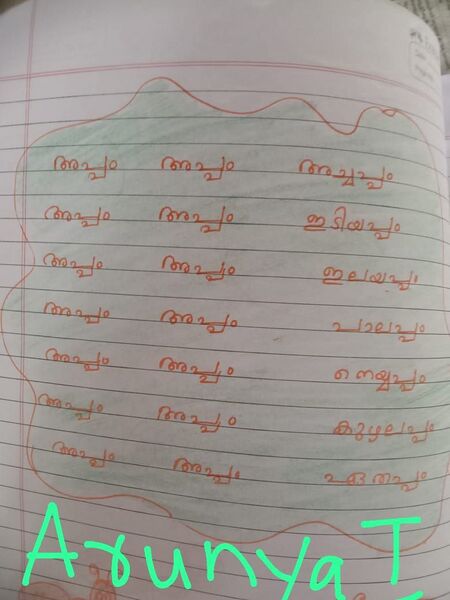 അപ്പം അപ്പം അച്ചപ്പം
അപ്പം അപ്പം ഇടിയപ്പം
അപ്പം അപ്പം ഇലയപ്പം
അപ്പം അപ്പം പാലപ്പം
അപ്പം അപ്പം നെയ്യപ്പം
അപ്പം അപ്പം കുഴലപ്പം
അപ്പം അപ്പം
Arunya I